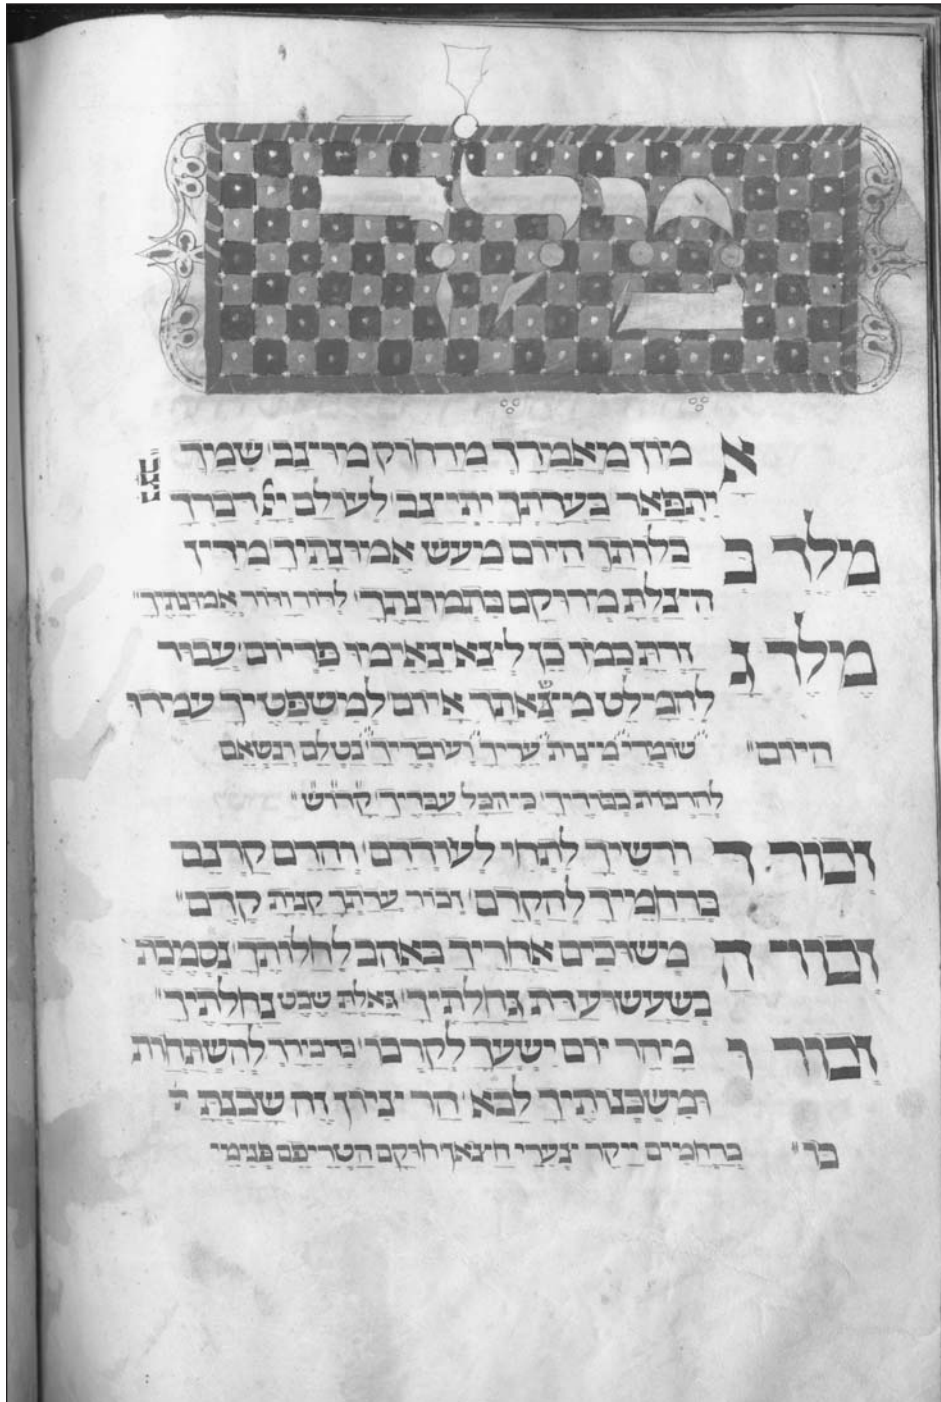 מלך
א מון מאמרך מרחוק מוצב שמך
יתפאר בעדתך יתייצב לעולם יי דברך
נצב
מלך ב בלותך היום מעש אמונתיך מדין
הצלת מרוקם בתמונתך לדור ודור אמונתיך
מלך ג זרת במו כן לצאצאימו פריום עבור
להמליט איום למשפטיך עמידו
היום שומרי מצות עדיך ועובדיך נטלם ונשאם
להרבות כבודיך כי הכל עבדיך קדוש
זכור ד ורשיך לתחי לעודדם והרם קרנם
ברחמיך להקדם זכור עדתך קנית קדם
זכור ה משוכים אחריך באהב לחלותך נסמכת
בשעשוע דת נחלתיך גאלת שבט נחלתיך
זכור ו מיהר יום ישעך לקרבו בדבירך להשתחות
ומשכנותיך לבא הר ציון זה שכנת
בו ברחמים יקר חוקם הטריפם פנימי